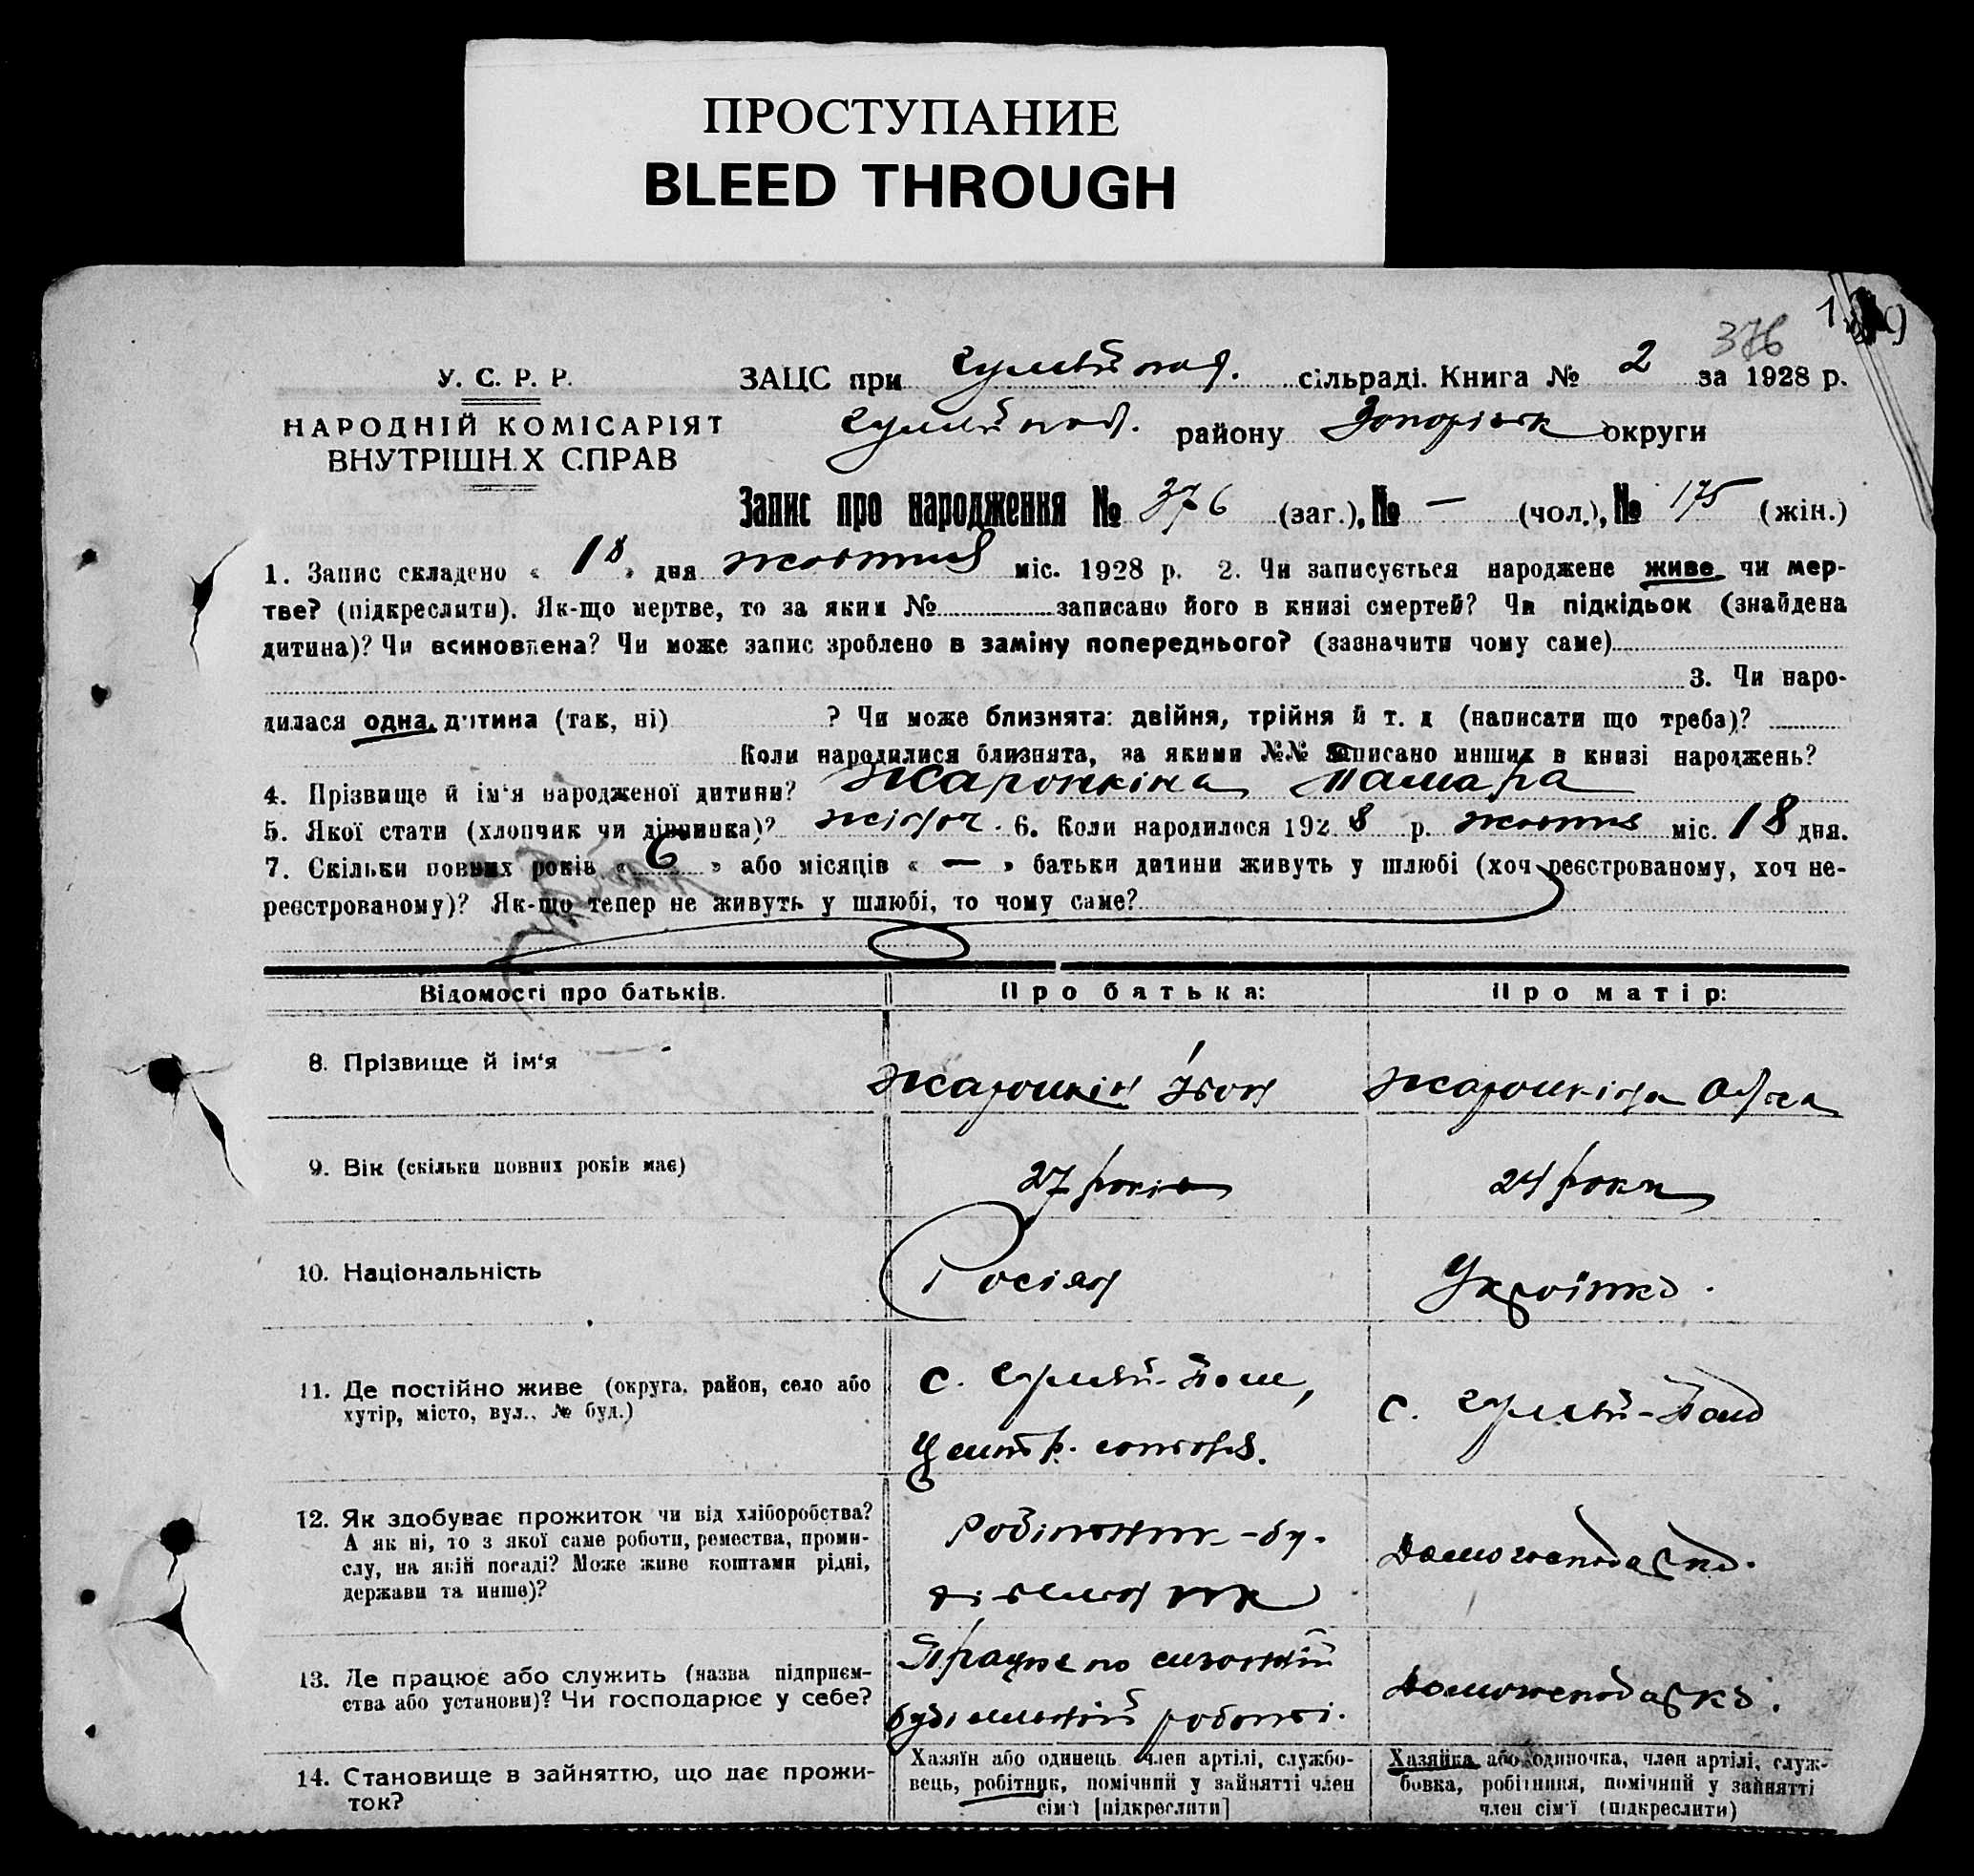 ПРОСТУПАНИЕ
BLEED THROUGH
376
У. С. Р. Р.
НАРОДНІЙ КОМІСАРІЯТ
ВНУТРІШНІХ СПРАВ
ЗАЦС при Гуляйпол. сільраді. Книга № 2 за 1928 р.
Гуляйпол. району Запоріжж округи
Запис про народження № 376 (заг.), № — (чол.), № 175 (жін.)
1. Запис складено « 18 » дня жовтня міс. 1928 р. 2. Чи записується народжене живе чи мер-
тве? (підкреслити). Як-що мертве, то за яким № записано його в книзі смертей? Чи підкідьок (знайдена
дитина)? Чи всиновлена? Чи може запис зроблено в заміну попереднього? (зазначити чому саме)
3. Чи наро-
дилася одна дитина (так, ні) ? Чи може близнята: двійня, трійня й т. д (написати що треба)?
Коли народилися близнята, за якими №№ записано инших в книзі народжень?
4. Прізвище й ім'я народженої дитини? Жарошкіна Тамара
5. Якої стати (хлопчик чи дівчинка)? жіноч. 6. Коли народилося 1928 р. жовтня міс. 18 дня.
7. Скільки повних років « 6 » або місяців « — » батьки дитини живуть у шлюбі (хоч реєстрованому, хоч не-
реєстрованому)? Як-що тепер не живуть у шлюбі, то чому саме?
Відомості про батьків. Про батька: Про матір:
8. Прізвище й ім'я Жарошкін Іван Жарошкіна
9. Вік (скільки повних років має) 27 років 24 роки
10. Національність Росіян Українка.
11. Де постійно живе (округа, район, село або
хутір, місто, вул., № буд.)
с. Гуляй-Поле,
Центр.
с. Гуляй-Поле
12. Як здобуває прожиток чи від хліборобства?
А як ні, то з якої саме роботи, ремества, проми-
слу, на якій посаді? Може живе коштами рідні,
держави та инше)?
Робітник-бу-
дівельник
Домогосподарка.
13. Де працює або служить (назва підприєм-
ства або установи)? Чи господарює у себе?
Працює по
будівельній роботі.
Домогосподарка.
14. Становище в зайняттю, що дає прожи-
ток?
Хазяїн або одинець член артілі, службо-
вець, робітник, помічний у зайнятті член
сім'ї [підкреслити]
Хазяйка або одиночка, член артілі, служ-
бовка, робітниця, помічний у зайнятті
член сім'ї (підкреслити)